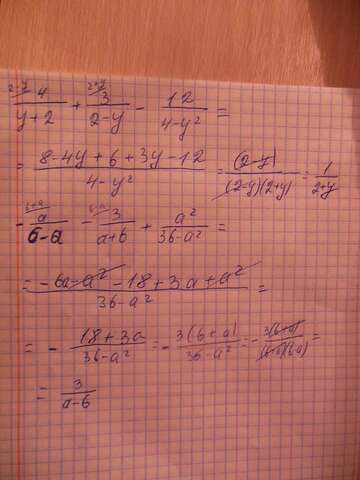 2-y 4/y+2 + 2+y 3/2-y - 12/4-y² =
= 8-4y+6+3y-12/4-y² = (2-y)/(2-y)(2+y) = 1/2+y
- a/6-a - 3/a+6 + a²/36-a² =
= -6a-a²-18+3a+a²/36-a² =
= - 18+3a/36-a² = - 3(6+a)/36-a² = - 3(6+a)/(6+a)(6-a) =
= 3/a-6